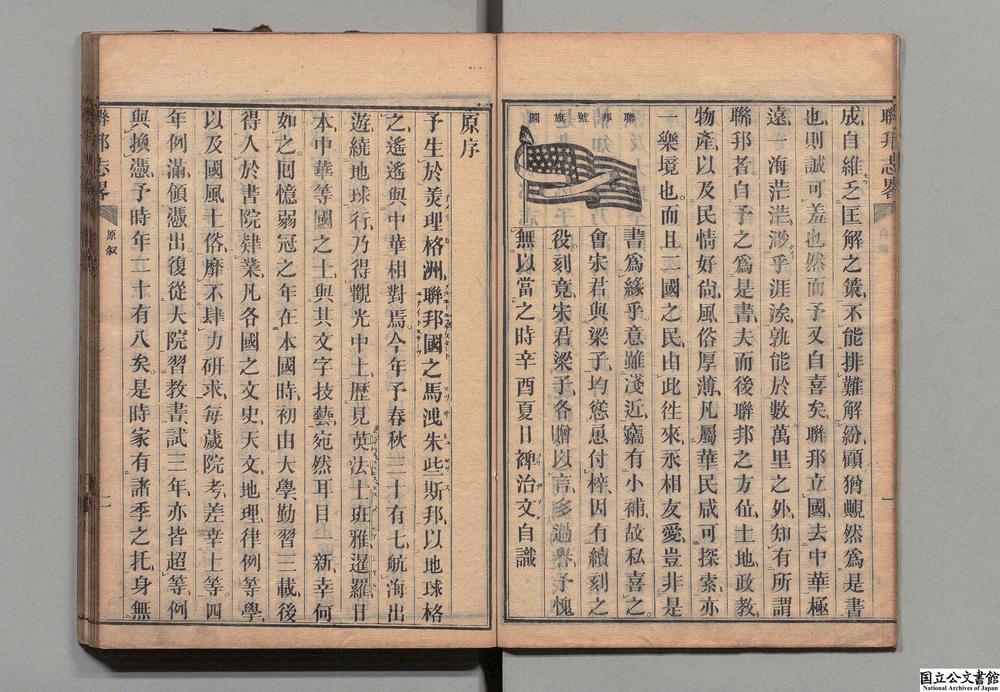 聯邦志畧
成自維乏匡解之策不能排難解紛顧猶靦然爲是書
也則誠可羞也然而予又自喜矣聯邦立國去中華極
遠一海茫茫渺乎涯涘孰能於數萬里之外知有所謂
聯邦者自予之爲是書夫而後聯邦之方位土地政教
物產以及民情好尙風俗厚薄凡屬華民咸可探索亦
一樂境也而且二國之民由此徃來永相友愛豈非是
聯邦號旗圖
書爲緣乎意雖淺近竊有小補故私喜之
會宋君與梁子均慫恿付梓因有續刻之
役刻竟宋君梁子各贈以言多過譽予愧
無以當之時辛酉夏日裨治文自識
原序
予生於美理格洲聯邦國之馬洩朱些斯邦以地球格
之遙遙與中華相對焉今年予春秋三十有七航海出
遊繞地球行乃得觀光中土歷見英法士班雅暹羅日
本中華等國之士與其文字技藝宛然耳目一新幸何
如之回憶弱冠之年在本國時初由大學勤習三載後
得人於書院肄業凡各國之文史天文地理律例等學
以及國風土俗靡不肆力研求每歲院考差幸上等四
年例滿領憑出復從大院習教書試三年亦皆超等例
與換憑予時年二十有八矣是時家有諸季之托身無
聯邦志畧
原叙
一
国立公文書館
National Archives of Japan